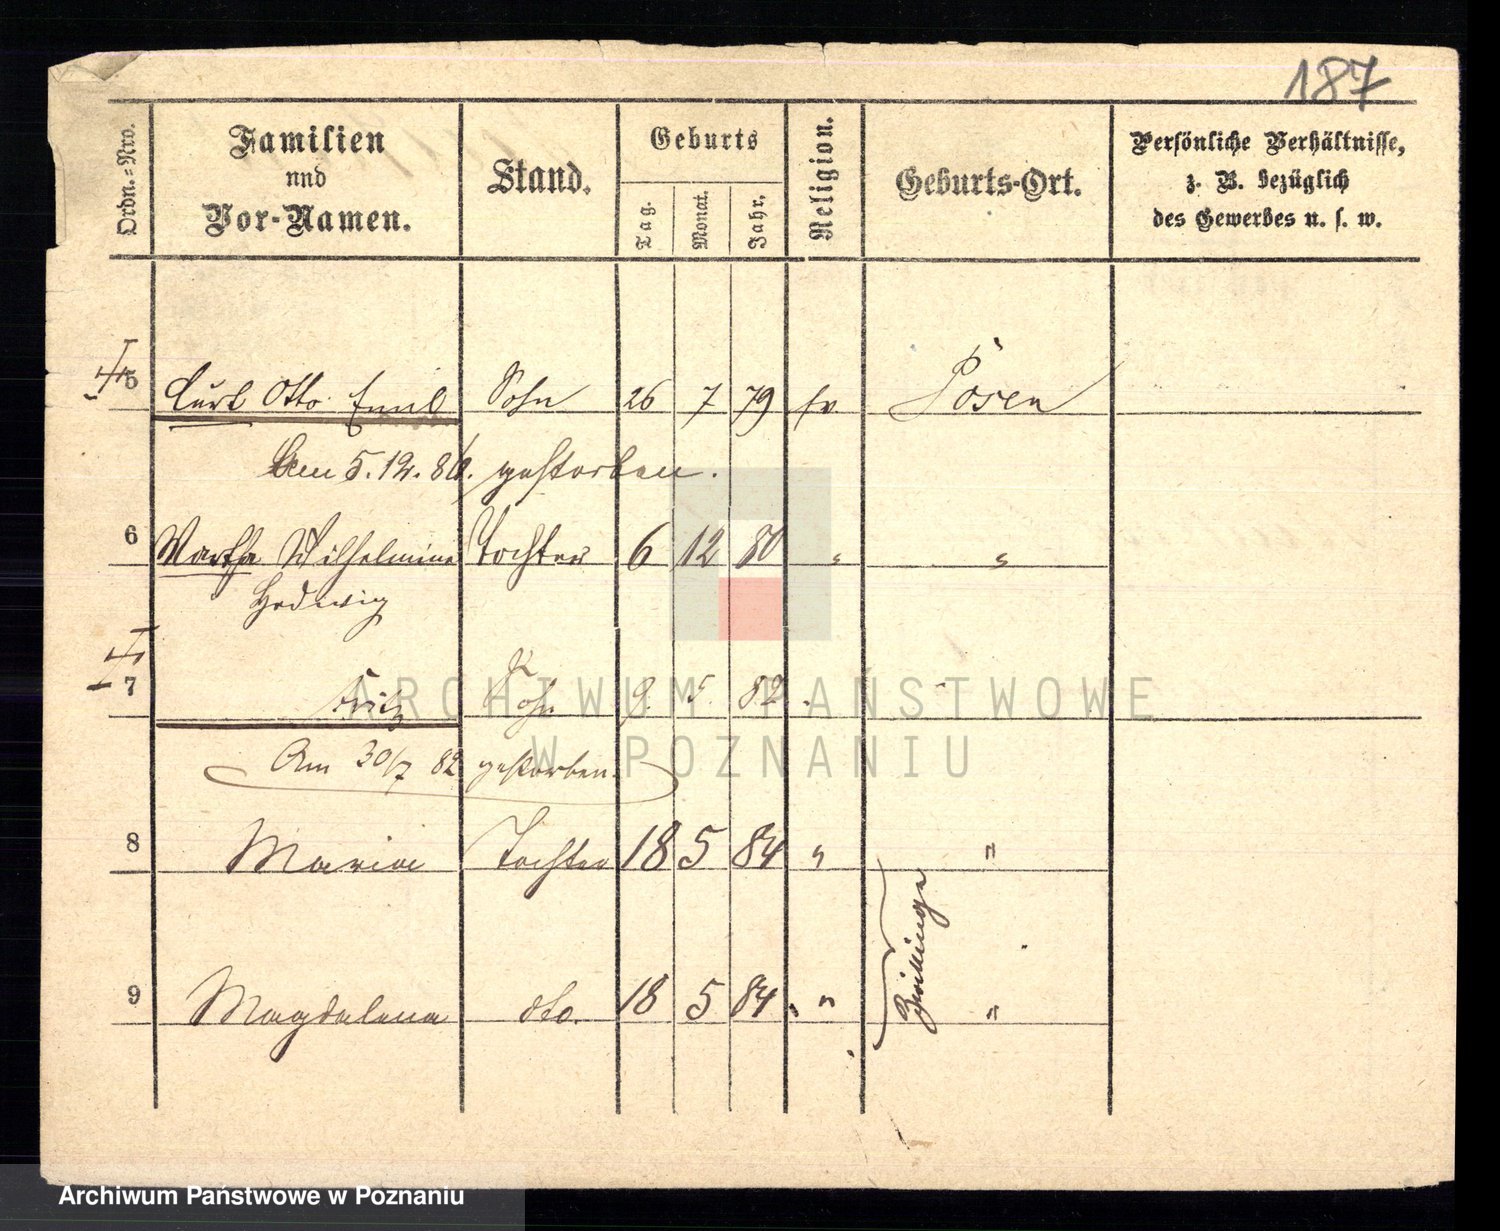 187
Ordn.-Nro.
Familien
und
Vor-Namen.
Stand.
Geburts
Tag.
Monat.
Jahr.
Religion.
Geburts-Ort.
Persönliche Verhältnisse,
z. B. bezüglich
des Gewerbes u. s. w.
5 Curt Otto Emil Sohn 26 7 79 ev Posen
Am 5.12.80. gestorben.
6 Martha Wilhelmine Tochter 6 12 80 " "
Hedwig
7 Fritz Sohn 9. 5. 82
Am 30/7 82 gestorben.
8 Maria Tochter 18 5 84 " "
Zwillinge
9 Magdalena dto. 18 5 84 " "
ARCHIWUM PAŃSTWOWE
W POZNANIU
Archiwum Państwowe w Poznaniu